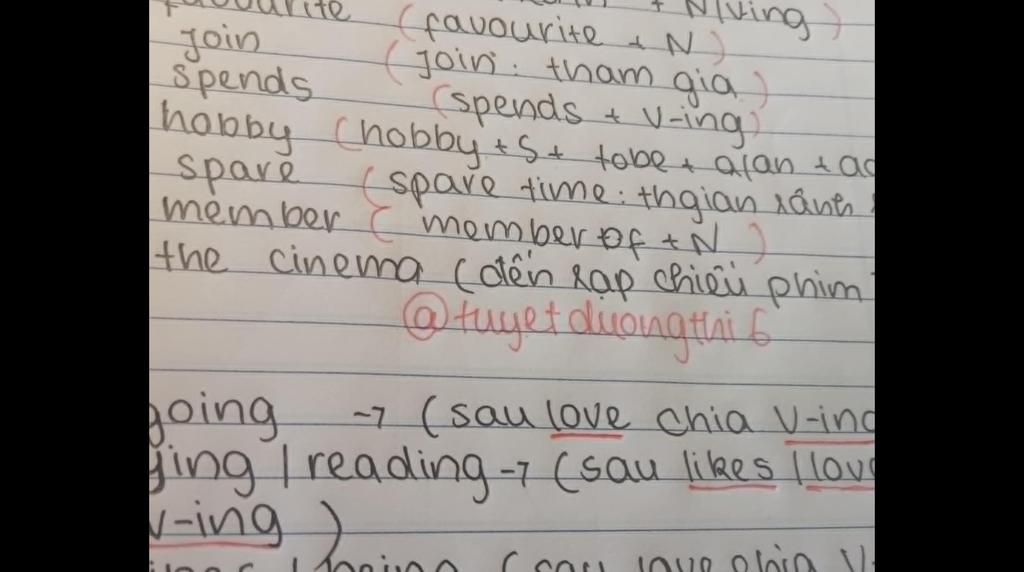 favourite (favourite + N)
+ N/Ving)
join (join: tham gia)
spends (spends + V-ing)
hobby (hobby + S + tobe + a/an + ad
spare (spare time: thgian rảnh
member (member of + N)
the cinema (đến rạp chiếu phim
@tuyetduongthi6
going → (sau love chia V-ing
ying / reading → (sau likes / love
V-ing)
(sau love chia V